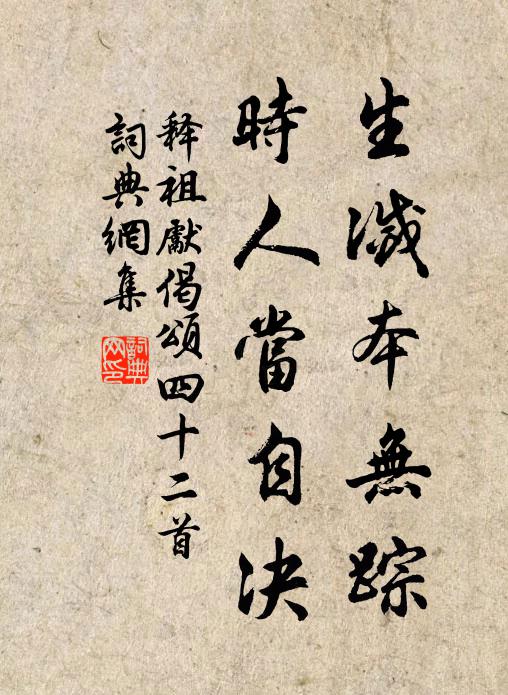 生滅本無踪
時人當自決
釋祖獻偈頌四十二首
詞典網集
詞典網印